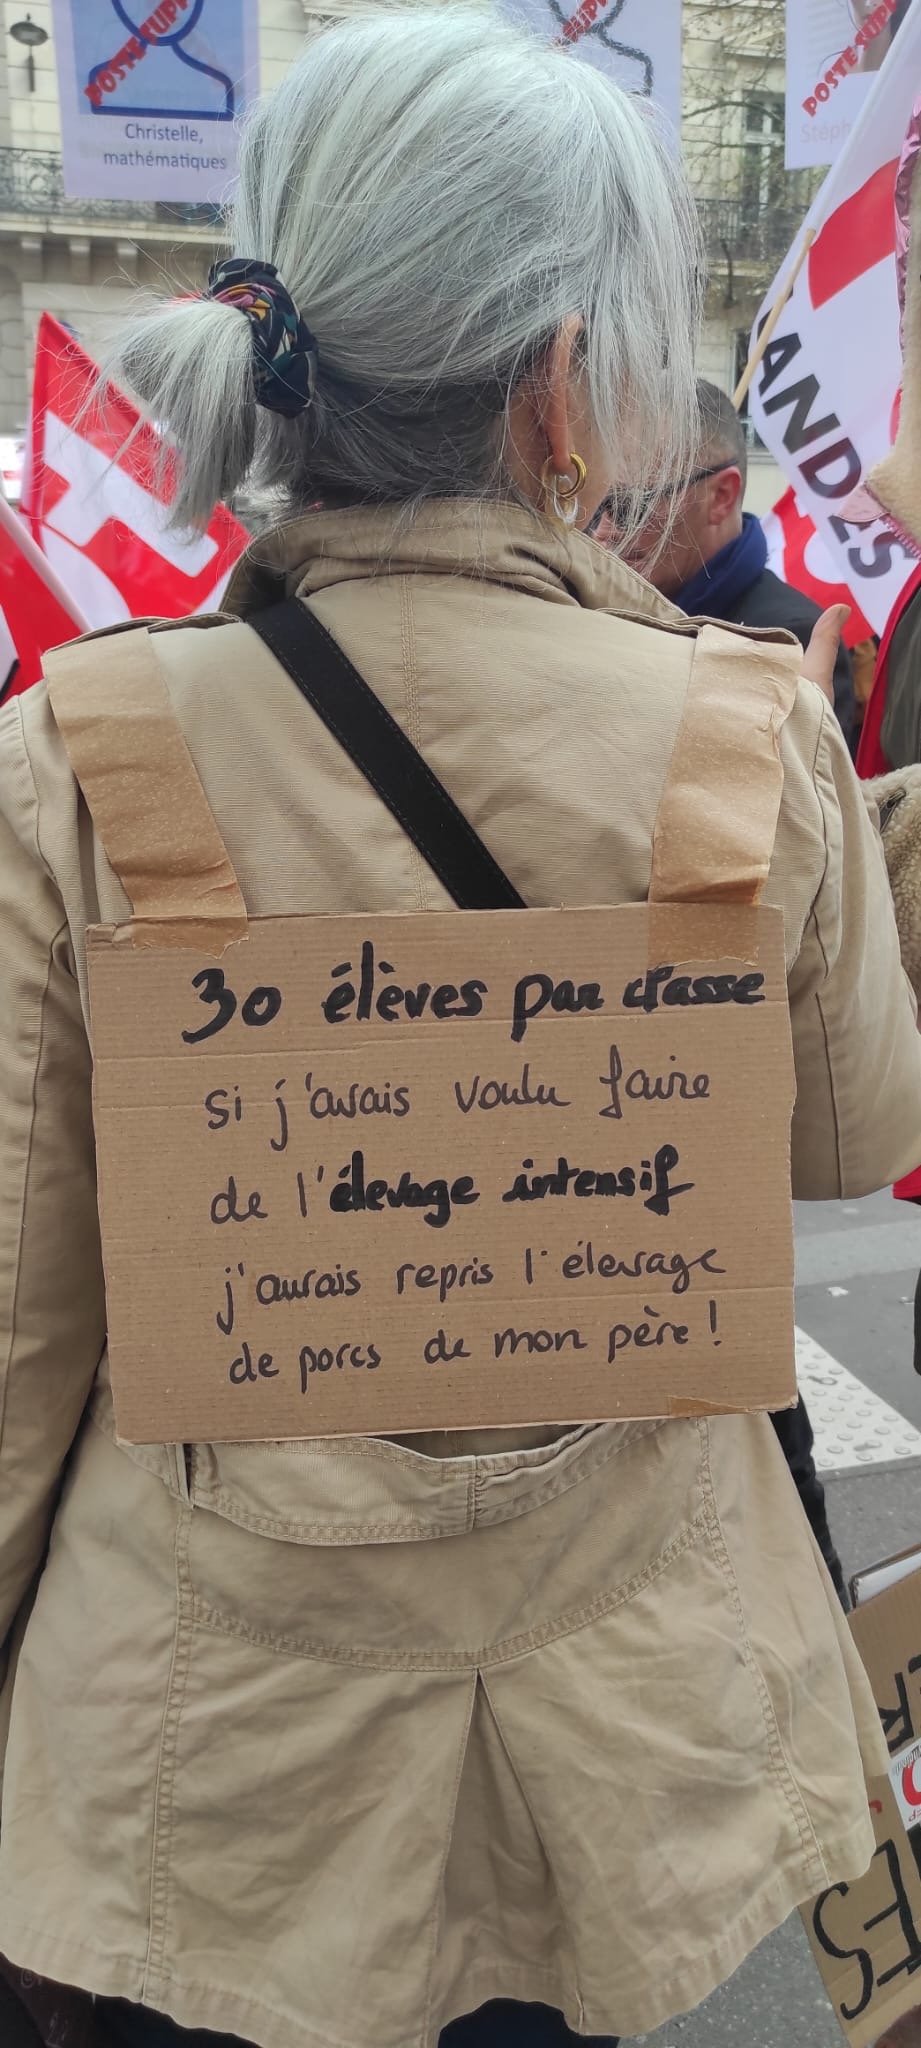 POSTE SUPP
Christelle,
mathématiques
SUPP
POSTE SUPP
Stéph
LANDES
30 élèves par classe
si j'avais voulu faire
de l'élevage intensif
j'aurais repris l'élevage
de porcs de mon père !
ER
ES